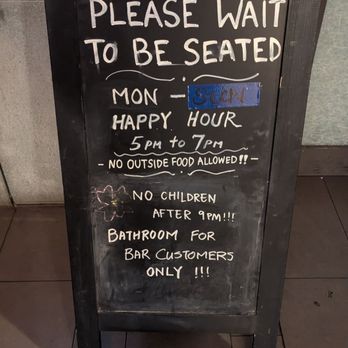 PLEASE WAIT
TO BE SEATED
MON - SUN
HAPPY HOUR
5PM to 7PM
- NO OUTSIDE FOOD ALLOWED!! -
NO CHILDREN
AFTER 9PM!!!
BATHROOM FOR
BAR CUSTOMERS
ONLY !!!